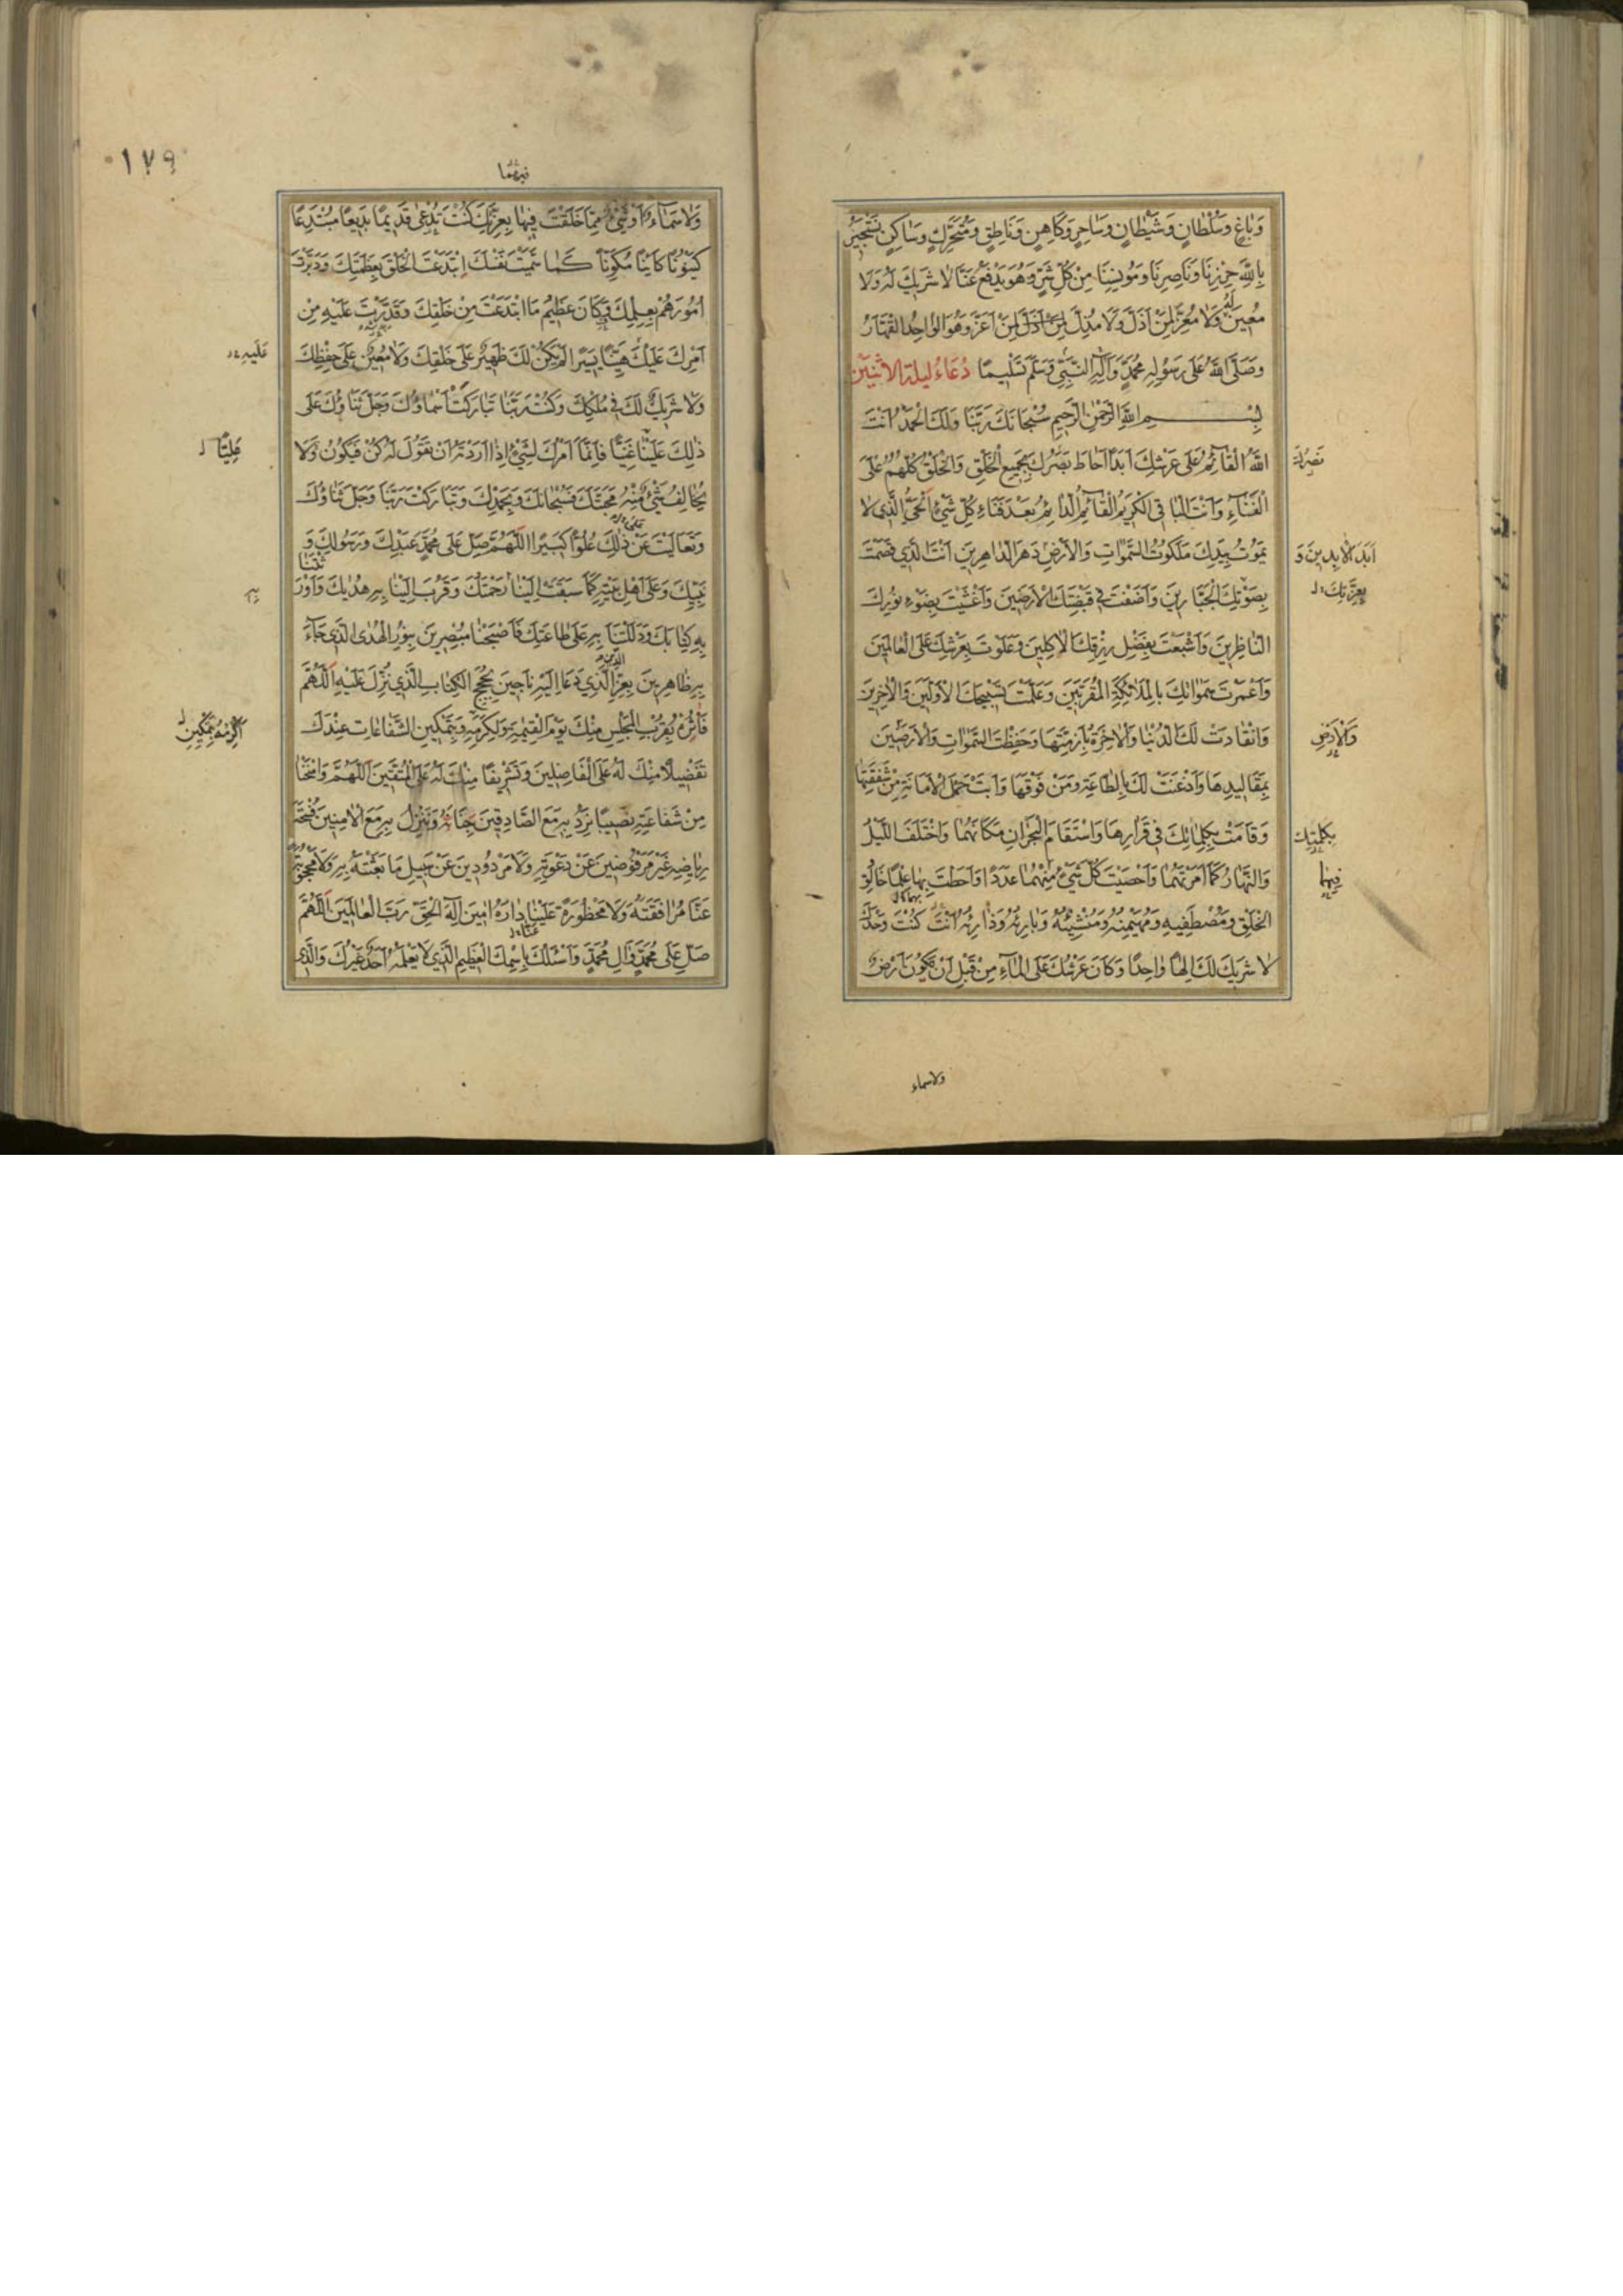 وَبَاغٍ وَسُلْطَانٍ وَشَيْطَانٍ وَسَاحِرٍ وَكَاهِنٍ وَنَاطِقٍ وَمُتَحَرِّكٍ وَسَاكِنٍ نَسْتَجِيرُ
بِاللّٰهِ حِرْزِنَا وَنَاصِرِنَا وَمُونِسِنَا مِنْ كُلِّ شَرٍّ وَهُوَ يَدْفَعُ عَنَّا لَا شَرِيكَ لَهُ وَلَا
مُعِينَ لَهُ وَلَا مُعِزَّ لِمَنْ اَذَلَّ وَلَا مُذِلَّ لِمَنْ اَعَزَّ وَهُوَ الْوَاحِدُ الْقَهَّارُ
وَصَلَّى اللّٰهُ عَلٰى رَسُولِهِ مُحَمَّدٍ وَآلِهِ النَّبِيِّ وَسَلَّمَ تَسْلِيمًا دُعَاءُ لَيْلَةِ الْاِثْنَيْنِ
بِسْمِ اللّٰهِ الرَّحْمٰنِ الرَّحِيمِ سُبْحَانَكَ رَبَّنَا وَلَكَ الْحَمْدُ اَنْتَ
اللّٰهُ الْقَآئِمُ عَلٰى عَرْشِكَ اَبَدًا اَحَاطَ بَصَرُكَ بِجَمِيعِ الْخَلْقِ وَالْخَلْقُ كُلُّهُمْ عَلَى
بَصَرُكَ
الْفَنَآءِ وَاَنْتَ الْبَاقِي الْكَرِيمُ الْقَآئِمُ الدَّائِمُ بَعْدَ فَنَاءِ كُلِّ شَيْءٍ اَلْحَيُّ الَّذِي لَا
يَمُوتُ بِيَدِكَ مَلَكُوتُ السَّمٰوَاتِ وَالْاَرْضِ دَهْرَ الدَّاهِرِينَ اَنْتَ الَّذِي قَصَمْتَ
اَبَدَ الْاٰبِدِينَ وَ
بِصَوْتِكَ الْجَبَّارِينَ وَاَضَفْتَ فِي قَبْضَتِكَ الْاَرَضِينَ وَاَغْشَيْتَ بِضَوْءِ نُورِكَ
بِعِزَّتِكَ
النَّاظِرِينَ وَاَشْبَعْتَ بِفَضْلِ رِزْقِكَ الْاٰكِلِينَ وَعَلَوْتَ بِعَرْشِكَ عَلَى الْعَالَمِينَ
وَاَعْمَرْتَ سَمٰوَاتِكَ بِالْمَلٰئِكَةِ الْمُقَرَّبِينَ وَعَلَّمْتَ تَسْبِيحَكَ الْاَوَّلِينَ وَالْاٰخِرِينَ
وَانْقَادَتْ لَكَ الدُّنْيَا وَالْاٰخِرَةُ بِاَزِمَّتِهَا وَحَفِظْتَ السَّمٰوَاتِ وَالْاَرَضِينَ
وَالْاَرْضَ
بِمَقَالِيدِهَا وَاَذْعَنَتْ لَكَ بِالطَّاعَةِ وَمَنْ فَوْقَهَا وَاَبَتْ حَمْلَ الْاَمَانَةِ مِنْ شَفَقَتِهَا
وَقَامَتْ بِكَلِمَاتِكَ فِي قَرَارِهَا وَاسْتَقَامَ الْبَحْرَانِ مَكَانَهُمَا وَاخْتَلَفَ اللَّيْلُ
بِكَلِمَتِكَ
وَالنَّهَارُ كَمَا اَمَرْتَهُمَا وَاَحْصَيْتَ كُلَّ شَيْءٍ مِنْهُمَا عَدَدًا وَاَحَطْتَ بِهِمَا عِلْمًا خَالِقَ
فِيهِمَا
الْخَلْقِ وَمُصْطَفِيهِ وَمُهَيْمِنُهُ وَمُنْشِئُهُ وَبَارِئُهُ وَذَارِئُهُ اَنْتَ كُنْتَ وَحْدَكَ
لَا شَرِيكَ لَكَ اِلٰهًا وَاحِدًا وَكَانَ عَرْشُكَ عَلَى الْمَآءِ مِنْ قَبْلِ اَنْ تَكُونَ اَرْضٌ
ولاسماء
١٧٩
وَلَا سَمَآءٌ اَوْ شَيْءٌ مِمَّا خَلَقْتَ فِيهَا بِعِزَّتِكَ كُنْتَ تُدْعٰى قَدِيمًا بَدِيعًا مُبْتَدِعًا
كَيْنُونًا كَائِنًا مُكَوِّنًا كَمَا سَمَّيْتَ نَفْسَكَ اِبْتَدَعْتَ الْخَلْقَ بِعَظَمَتِكَ وَدَبَّرْتَ
اُمُورَهُمْ بِعِلْمِكَ وَكَانَ عَظِيمُ مَا ابْتَدَعْتَ مِنْ خَلْقِكَ وَقَدَّرْتَ عَلَيْهِ مِنْ
اَمْرِكَ عَلَيْكَ هَيِّنًا يَسِيرًا لَمْ يَكُنْ لَكَ ظَهِيرٌ عَلٰى خَلْقِكَ وَلَا مُعِينٌ عَلٰى حِفْظِكَ
عَلَيْهِ
وَلَا شَرِيكٌ لَكَ فِي مُلْكِكَ وَكُنْتَ رَبَّنَا تَبَارَكَتْ اَسْمَاؤُكَ وَجَلَّ ثَنَاؤُكَ عَلٰى
ذٰلِكَ عَلَيْنَا غَنِيًّا فَاِنَّمَا اَمْرُكَ لِشَيْءٍ اِذَا اَرَدْتَهُ اَنْ تَقُولَ لَهُ كُنْ فَيَكُونُ وَلَا
عَلِيًّا
يُخَالِفُ شَيْءٌ مِنْهُ مَحَبَّتَكَ فَسُبْحَانَكَ وَبِحَمْدِكَ وَتَبَارَكْتَ رَبَّنَا وَجَلَّ ثَنَاؤُكَ
وَتَعَالَيْتَ عَنْ ذٰلِكَ عُلُوًّا كَبِيرًا اَللّٰهُمَّ صَلِّ عَلٰى مُحَمَّدٍ عَبْدِكَ وَرَسُولِكَ وَ
نَبِيِّكَ وَعَلٰى اَهْلِ بَيْتِهِ كَمَا سَبَقَتْ اِلَيْنَا رَحْمَتُكَ وَقَرُبَ اِلَيْنَا بِهِ هُدٰيكَ وَاَوْرَثْتَنَا
بِهِ
بِهِ كِتَابَكَ وَدَلَلْتَنَا بِهِ عَلٰى طَاعَتِكَ فَاَصْبَحْنَا مُبْصِرِينَ بِنُورِ الْهُدٰى الَّذِي جَآءَ
بِهِ ظَاهِرِينَ بِعِزِّ الَّذِي دَعَا اِلَيْهِ نَاجِينَ بِحُجَجِ الْكِتَابِ الَّذِي نُزِّلَ عَلَيْهِ اَللّٰهُمَّ
فَآثِرْهُ بِقُرْبِ الْمَجْلِسِ مِنْكَ يَوْمَ الْقِيٰمَةِ وَاَكْرِمْهُ بِتَمْكِينِ الشَّفَاعَاتِ عِنْدَكَ
اَكْرِمْهُ بِتَمْكِينِ
تَفْضِيلًا مِنْكَ لَهُ عَلَى الْفَاضِلِينَ وَتَشْرِيفًا مِنْكَ لَهُ عَلَى الْمُتَّقِينَ اَللّٰهُمَّ وَامْنَحْنَا
مِنْ شَفَاعَتِهِ نَصِيبًا نَرِدُ بِهِ مَعَ الصَّادِقِينَ جِنَانَهُ وَنَنْزِلُ بِهِ مَعَ الْاٰمِنِينَ فُسْحَةَ
رِيَاضِهِ غَيْرَ مَرْفُوضِينَ عَنْ دَعْوَتِهِ وَلَا مَرْدُودِينَ عَنْ سَبِيلِ مَا بَعَثْتَهُ بِهِ وَلَا مَحْجُوبَةٍ
عَنَّا مُرَافَقَتُهُ وَلَا مَحْظُورَةً عَلَيْنَا دَارُهُ اٰمِينَ اِلٰهَ الْحَقِّ رَبَّ الْعَالَمِينَ اَللّٰهُمَّ
صَلِّ عَلٰى مُحَمَّدٍ وَآلِ مُحَمَّدٍ وَاَسْئَلُكَ بِاسْمِكَ الْعَظِيمِ الَّذِي لَا يَعْلَمُهُ اَحَدٌ غَيْرُكَ وَالَّذِي